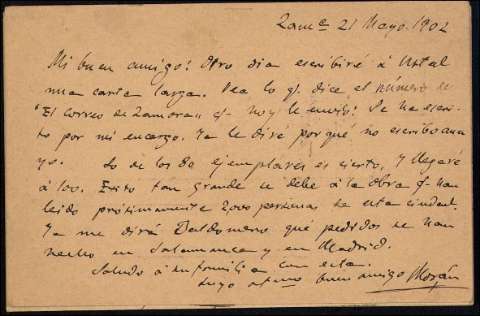 Zamª 21 Mayo 1902
Mi buen amigo: Otro dia escribiré á Ustal
una carta larga. Vea lo q. dice el número de
"El Correo de Zamora" q. hoy le envío. Se ha escri-
to por mi encargo. Ya le diré por qué no escribo aun
yo. Lo de los 80 ejemplares es cierto, y llegaré
á 100. Exito tan grande se debe á la obra q. han
leido próximamente 2,000 personas de esta ciudad.
Ya me dirá Baldomero qué pedidos se han
hecho en Salamanca y en Madrid.
Saludo á su familia con esta.
Suyo afmo buen amigo Morán